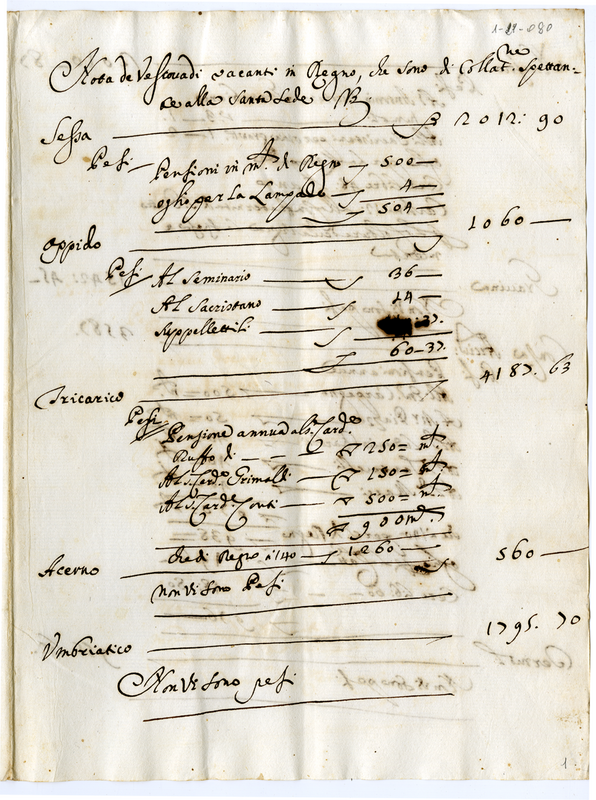 1-19-080
Nota de Vescovadi vacanti in Regno, che sono di Collat.ne spettan=
ze alla Santa Sede
Sessa 2012: 90
Pesi Pensioni in m.ta di Regno 500
oglio per la Lampada 4
504
Oppido 1060
Pesi Al Seminario 36
Al Sacristano 14
Suppellettili 37
60-37
Tricarico 4187. 63
Pesi
Pensione annua al s. Card.e
Ruffo di 250= m.ta
Al s. Card.e Grimaldi 150= m.ta
Al s. Card.e Conti 500= m.ta
900 m.ta
che di Regno a 140 1260
Acerno 560
non vi sono Pesi
Umbriatico 1795. 70
Non vi sono pesi
1